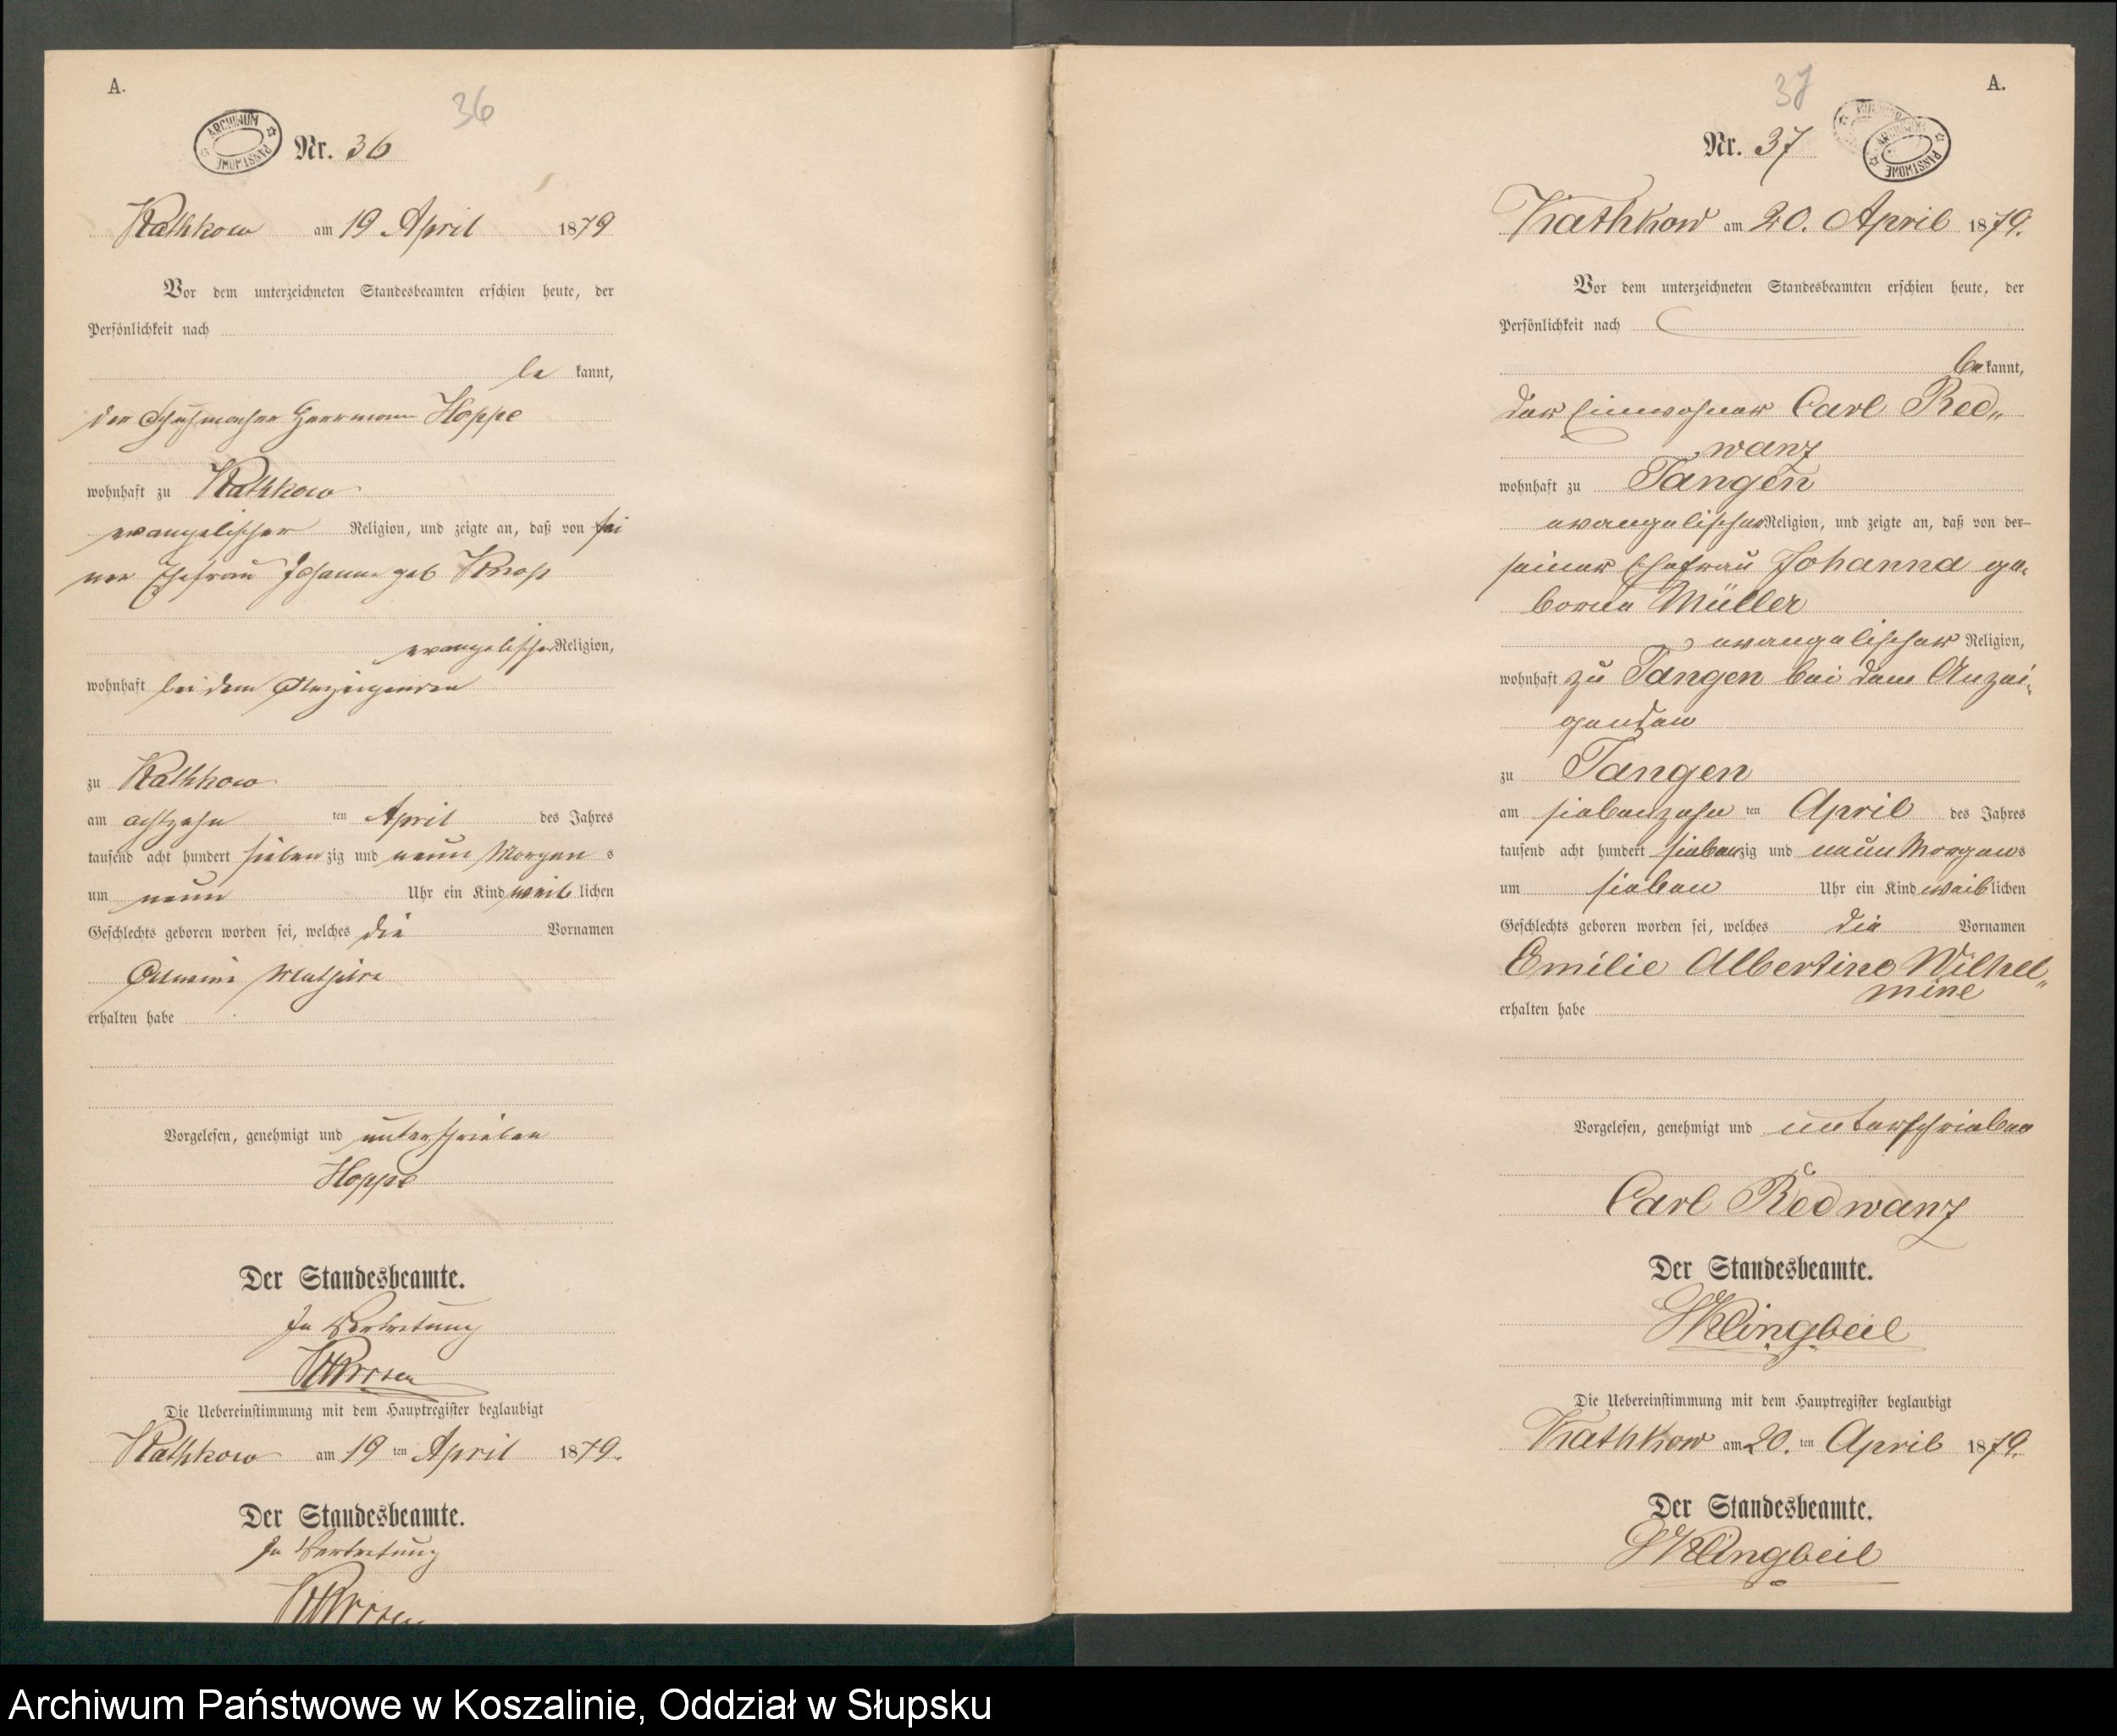 A.
36
ARCHIWUM PAŃSTWOWE
Nr. 36
Kathkow am 19 April 1879
Vor dem unterzeichneten Standesbeamten erschien heute, der
Persönlichkeit nach
be kannt,
der Schuhmacher Herrmann Hoppe
wohnhaft zu Kathkow
evangelischer Religion, und zeigte an, daß von sei
ner Ehefrau Johanne geb
evangelischer Religion,
wohnhaft bei dem Anzeigenden
zu Kathkow
am achtzehn ten April des Jahres
tausend acht hundert sieben zig und neun Morgen s
um neun Uhr ein Kind weib lichen
Geschlechts geboren worden sei, welches die Vornamen
erhalten habe
Vorgelesen, genehmigt und unterschrieben
Hoppe
Der Standesbeamte.
In Vertretung
Die Uebereinstimmung mit dem Hauptregister beglaubigt
Kathkow am 19 ten April 1879.
Der Standesbeamte.
In Vertretung
A.
37
ARCHIWUM PAŃSTWOWE
Nr. 37
Kathkow am 20. April 1879.
Vor dem unterzeichneten Standesbeamten erschien heute, der
Persönlichkeit nach
be kannt,
der Einwohner Carl Red„
wanz
wohnhaft zu Tangen
evangelischer Religion, und zeigte an, daß von der—
seiner Ehefrau Johanna ge„
borne Müller
evangelischer Religion,
wohnhaft zu Tangen bei dem Anzei„
genden
zu Tangen
am siebenzehn ten April des Jahres
tausend acht hundert sieben zig und neun Morgens
um sieben Uhr ein Kind weib lichen
Geschlechts geboren worden sei, welches die Vornamen
Emilie Albertine Wilhel„
mine
erhalten habe
Vorgelesen, genehmigt und unterschrieben
Carl Redwanz
Der Standesbeamte.
Klingbeil
Die Uebereinstimmung mit dem Hauptregister beglaubigt
Kathkow am 20. ten April 1879.
Der Standesbeamte.
Klingbeil
Archiwum Państwowe w Koszalinie, Oddział w Słupsku